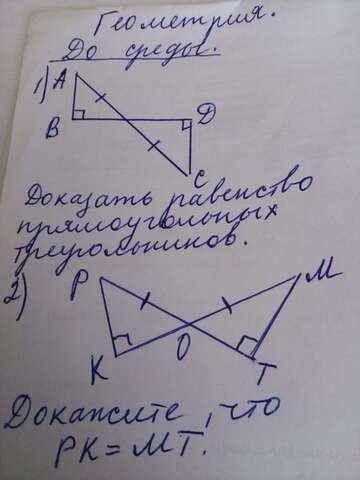 Геометрия.
До среды.
1) A
B
D
C
Доказать равенство
прямоугольных
треугольников.
2) P
M
K
O
T
Докажите, что
PK = MT.